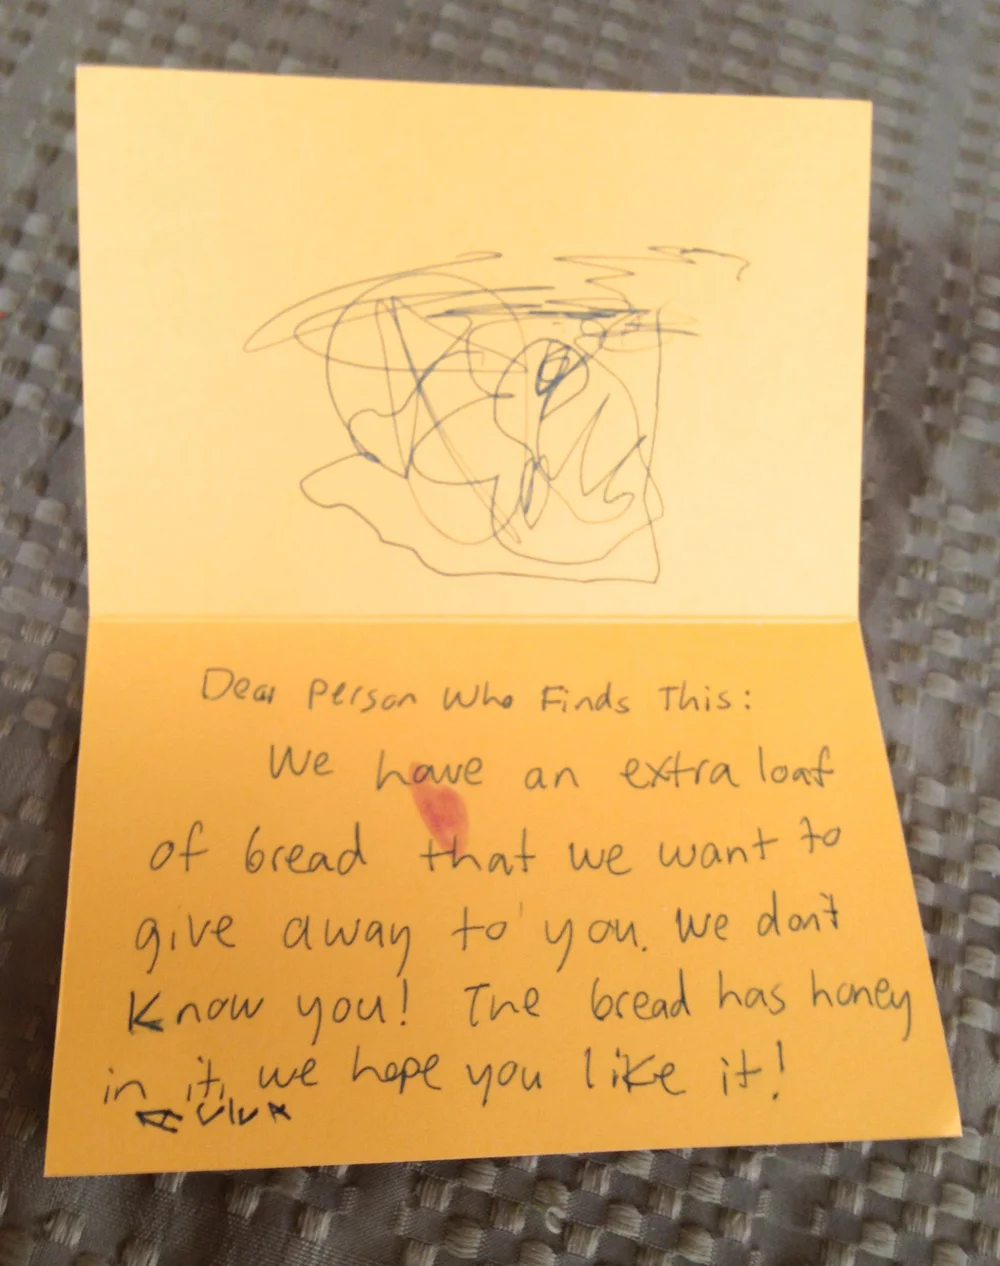 Dear Person Who Finds This:
We have an extra loaf
of bread that we want to
give away to you. We don't
know you! The bread has honey
in it, we hope you like it!